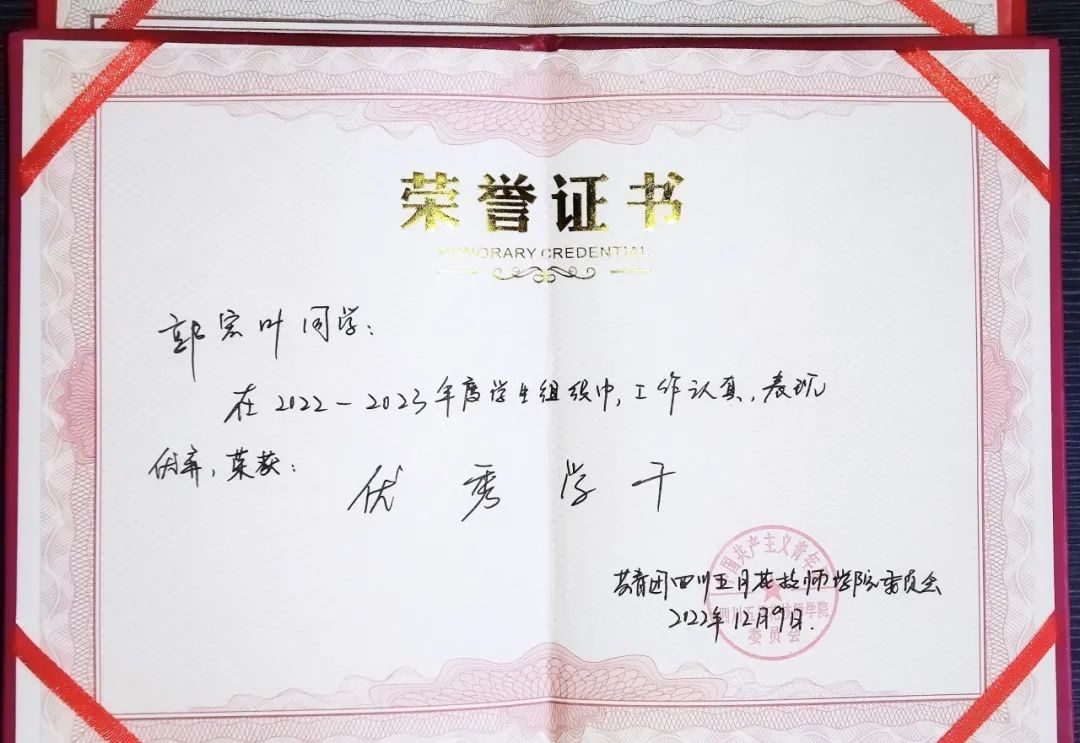 荣誉证书
HONORARY CREDENTIAL
郭宏叶同学:
在2022-2023年度学生组织中,工作认真,表现
优异,荣获:
优秀学干
共青团四川五月花技师学院委员会
2022年12月9日.
中国共产主义青年团
四川五月花技师学院
委员会